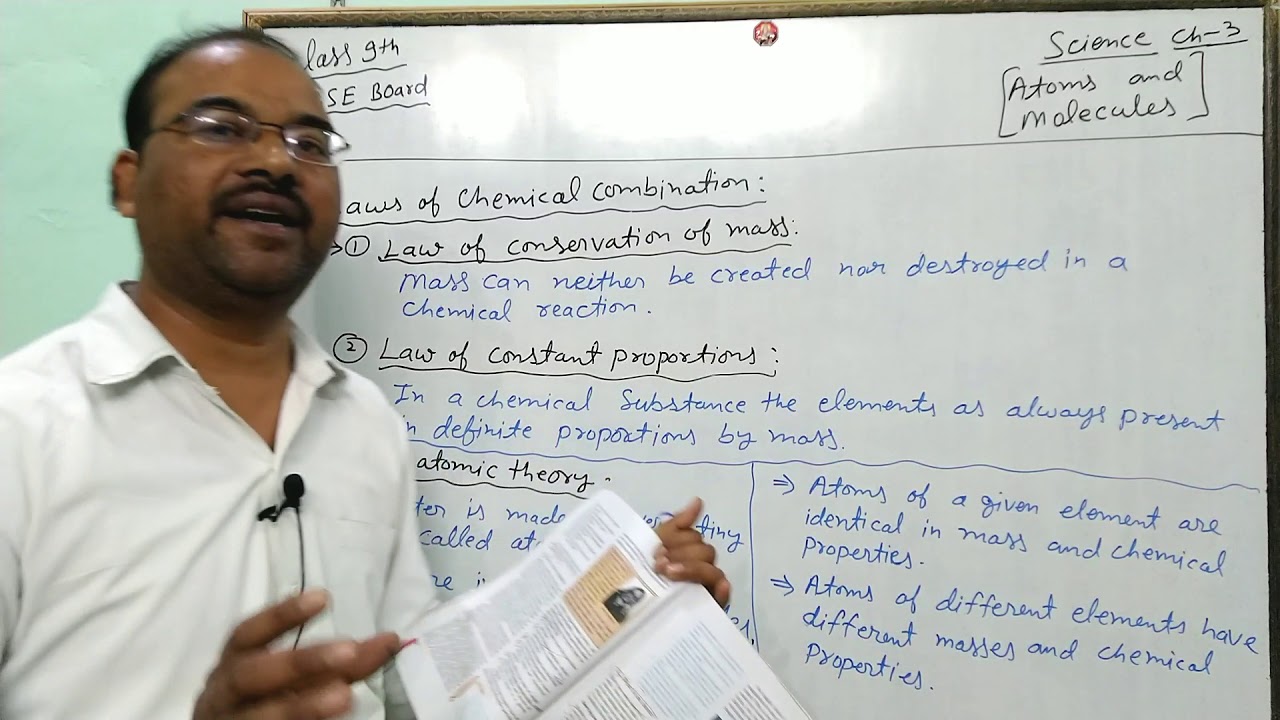 lass 9th
SE Board
Science Ch-3
[Atoms and
Molecules]
aws of Chemical Combination:
→① Law of conservation of mass:
Mass can neither be created nor destroyed in a
Chemical reaction.
② Law of constant proportions:
In a chemical Substance the elements as always present
in definite proportions by mass.
atomic theory.
ter is made
tiny
called at
re i
⇒ Atoms of a given element are
identical in mass and chemical
properties.
⇒ Atoms of different elements have
different masses and chemical
Properties.